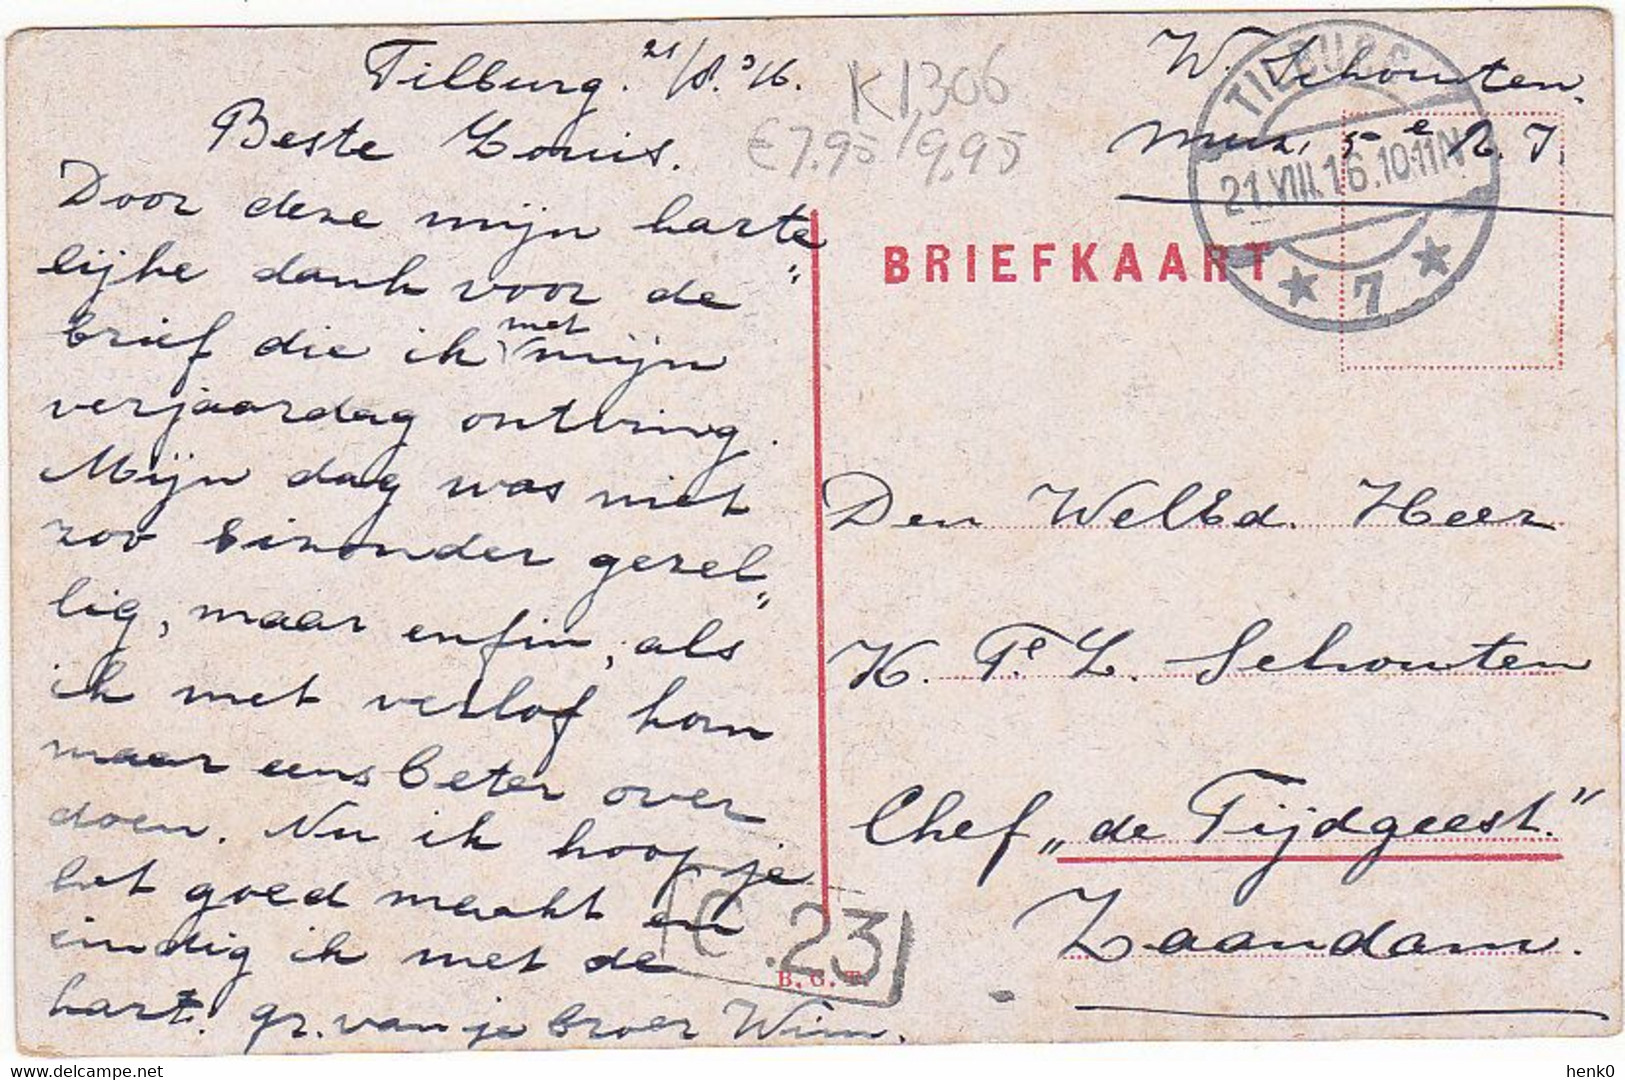 Tilburg. 21/8.'16.
Beste Louis.
Door deze mijn harte„
lijke dank voor de
brief die ik met mijn
verjaardag ontving.
Mijn dag was niet
zoo bizonder gezel„
lig, maar enfin, als
ik met verlof kom
maar eens beter over
doen. Nu ik hoop je
het goed maakt en
eindig ik met de
hart. gr. van je broer Wim.
K1306
€7.95/9,95
W. Schouten.
Muz. 5e R. I.
TILBURG
21.VIII.16.10-11N
7
BRIEFKAART
Den WelEd. Heer
K. Fe. L. Schouten
Chef „de Tijdgeest."
Zaandam.
C.23
B. C. T.
henk0